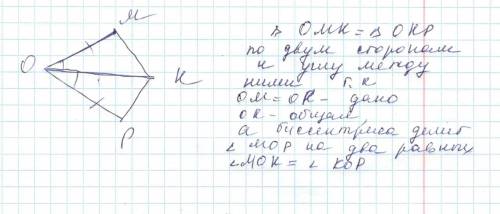 M
O
K
P
Δ OMK = Δ OKP
по двум сторонам
и углу между
ними т.к
OM = OK - дано
OK - общая,
а биссектриса делит
∠ MOP на два равных
∠MOK = ∠ KOP